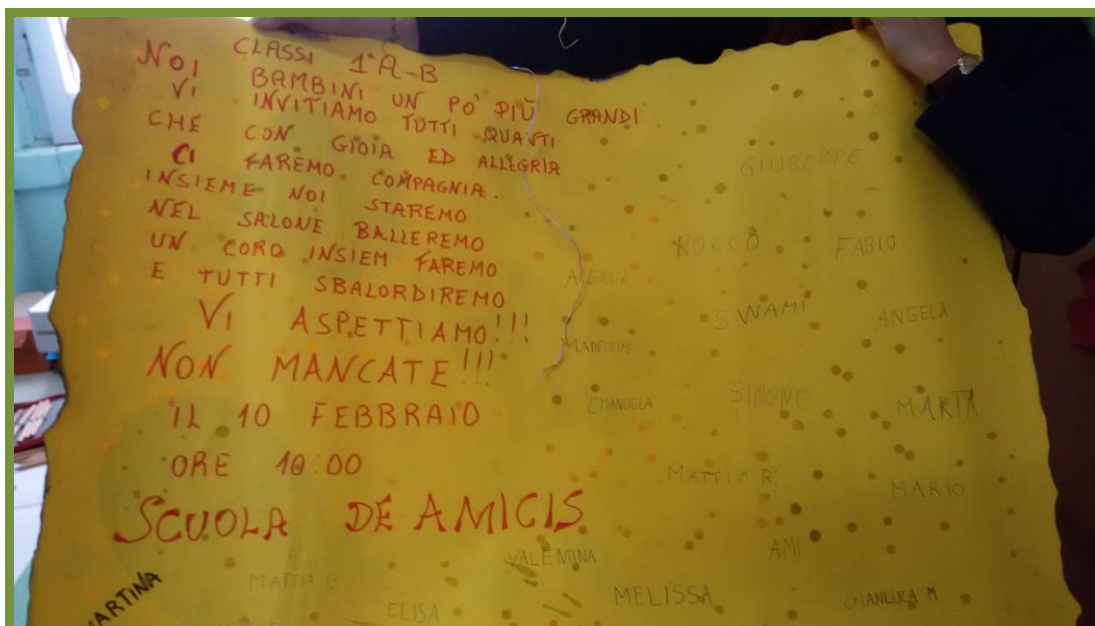 NOI CLASSI 1ª A-B
BAMBINI UN PO' PIÙ GRANDI
VI INVITIAMO TUTTI QUANTI
CHE CON GIOIA ED ALLEGRIA
CI FAREMO COMPAGNIA.
INSIEME NOI STAREMO
NEL SALONE BALLEREMO
UN CORO INSIEM FAREMO
E TUTTI SBALORDIREMO
VI ASPETTIAMO!!!
NON MANCATE!!!
IL 10 FEBBRAIO
ORE 10:00
SCUOLA DE AMICIS
GIUSEPPE
ROCCO FABIO
ALESSIA
SWAMI ANGELA
EMANUELA SIMONE MARTA
MATTIA R. MARIO
VALENTINA AMI
MARTINA MATTIA
ELISA MELISSA GIANLUCA M